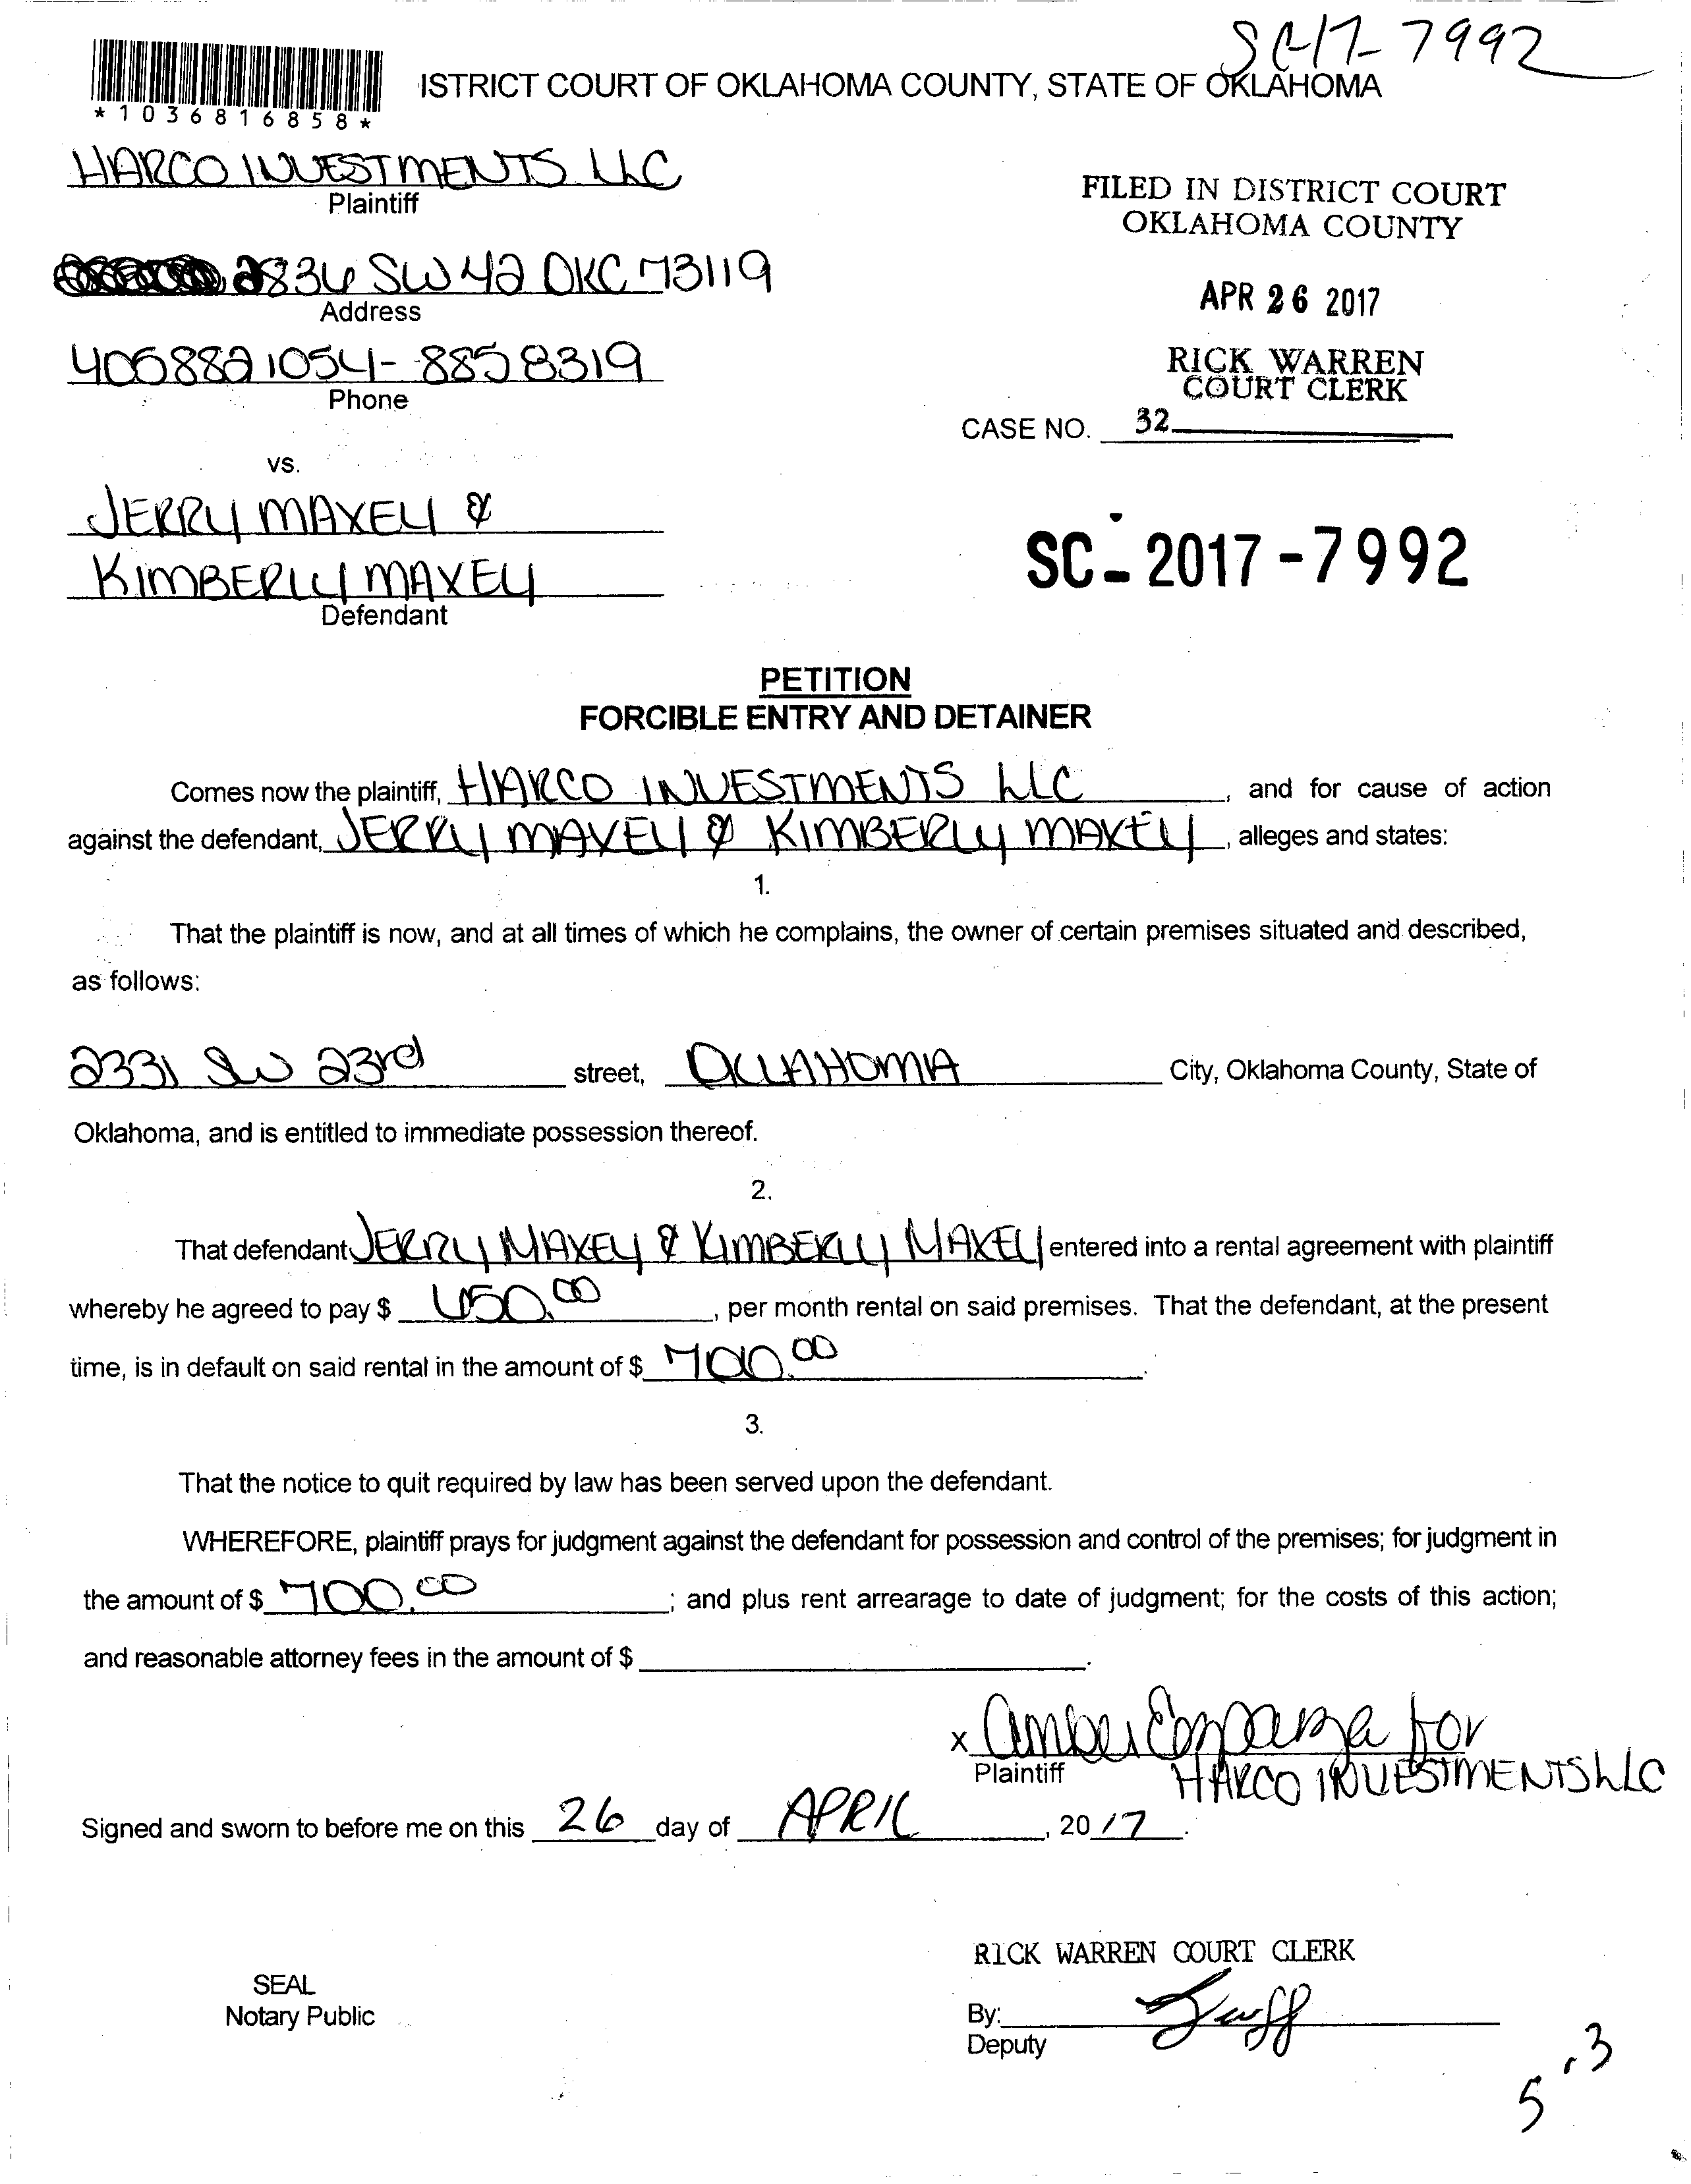 SC-17-7992
ISTRICT COURT OF OKLAHOMA COUNTY, STATE OF OKLAHOMA
*1036816858*
HARCO INVESTMENTS LLC
Plaintiff
FILED IN DISTRICT COURT
OKLAHOMA COUNTY
2836 SW 42 OKC 73119
Address
APR 26 2017
4058821054- 8858319
Phone
RICK WARREN
COURT CLERK
CASE NO. 32
vs.
JERRY MAXEY &
KIMBERLY MAXEY
Defendant
SC - 2017 - 7992
PETITION
FORCIBLE ENTRY AND DETAINER
Comes now the plaintiff, HARCO INVESTMENTS LLC, and for cause of action
against the defendant, JERRY MAXEY & KIMBERLY MAXEY, alleges and states:
1.
That the plaintiff is now, and at all times of which he complains, the owner of certain premises situated and described,
as follows:
2331 SW 23rd street, OKLAHOMA City, Oklahoma County, State of
Oklahoma, and is entitled to immediate possession thereof.
2.
That defendant JERRY MAXEY & KIMBERLY MAXEY entered into a rental agreement with plaintiff
whereby he agreed to pay $ 650.00, per month rental on said premises. That the defendant, at the present
time, is in default on said rental in the amount of $ 700.00.
3.
That the notice to quit required by law has been served upon the defendant.
WHEREFORE, plaintiff prays for judgment against the defendant for possession and control of the premises; for judgment in
the amount of $ 700.00; and plus rent arrearage to date of judgment; for the costs of this action;
and reasonable attorney fees in the amount of $ .
x Amber Esparza for
Plaintiff HARCO INVESTMENTS LLC
Signed and sworn to before me on this 26 day of APRIL, 20 17.
RICK WARREN COURT CLERK
SEAL
Notary Public
By:
Deputy
5 . 3